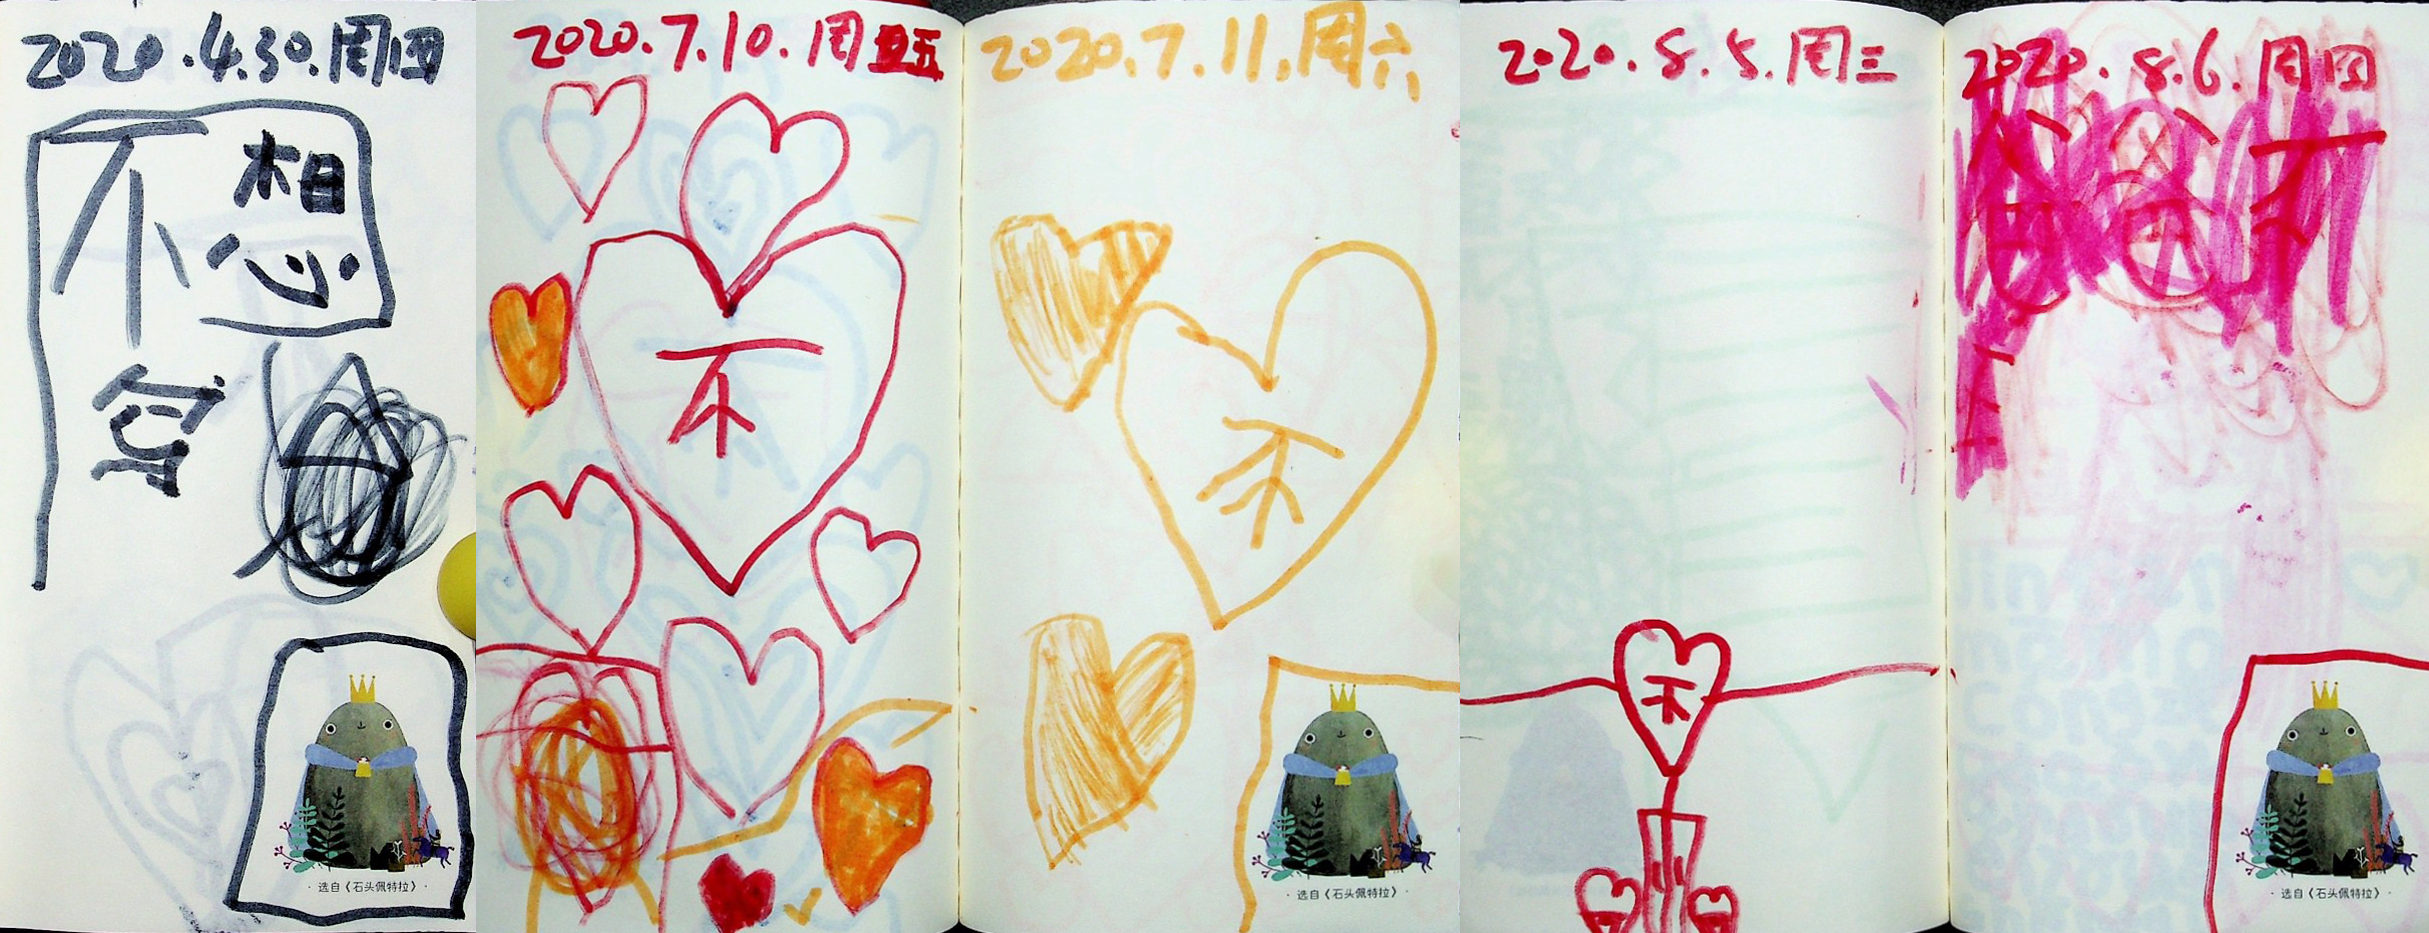 2020.4.30.周四
不想
写
·选自《石头佩特拉》·
2020.7.10.周五
不
2020.7.11.周六
不
·选自《石头佩特拉》·
2020.8.5.周三
不
2020.8.6.周四
·选自《石头佩特拉》·